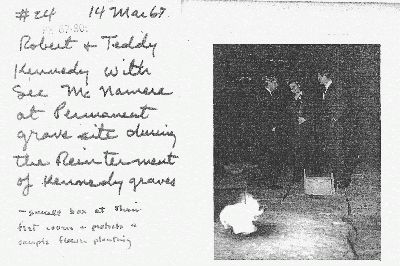 #24 14 Mar 67
Robert + Teddy
Kennedy with
Sec McNamera
at Permanent
grave site during
the Reinterment
of Kennedy graves
- small box at their
feet covers + protects a
sample flower planting